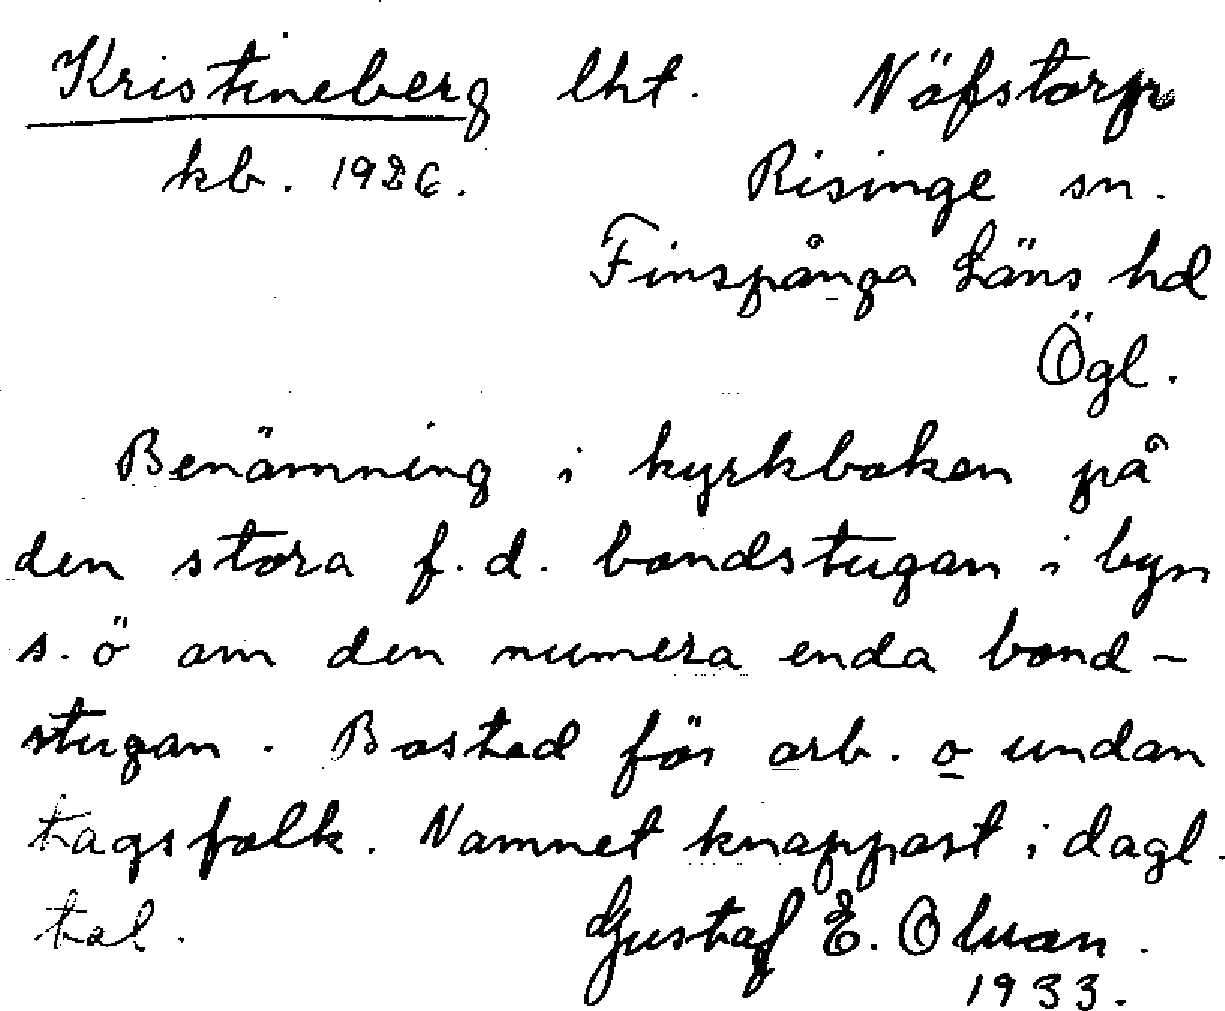 Kristineberg lht. Näfstorp
kb. 1926. Risinge sn.
Finspånga Läns hd
Ögl.
Benämning i kyrkboken på
den stora f.d. bondstugan i byn
s.ö om den numera enda bond-
stugan. Bostad för arb. o undan
tagsfolk. Namnet knappast i dagl.
tal. Gustaf E. Olvan.
1933.